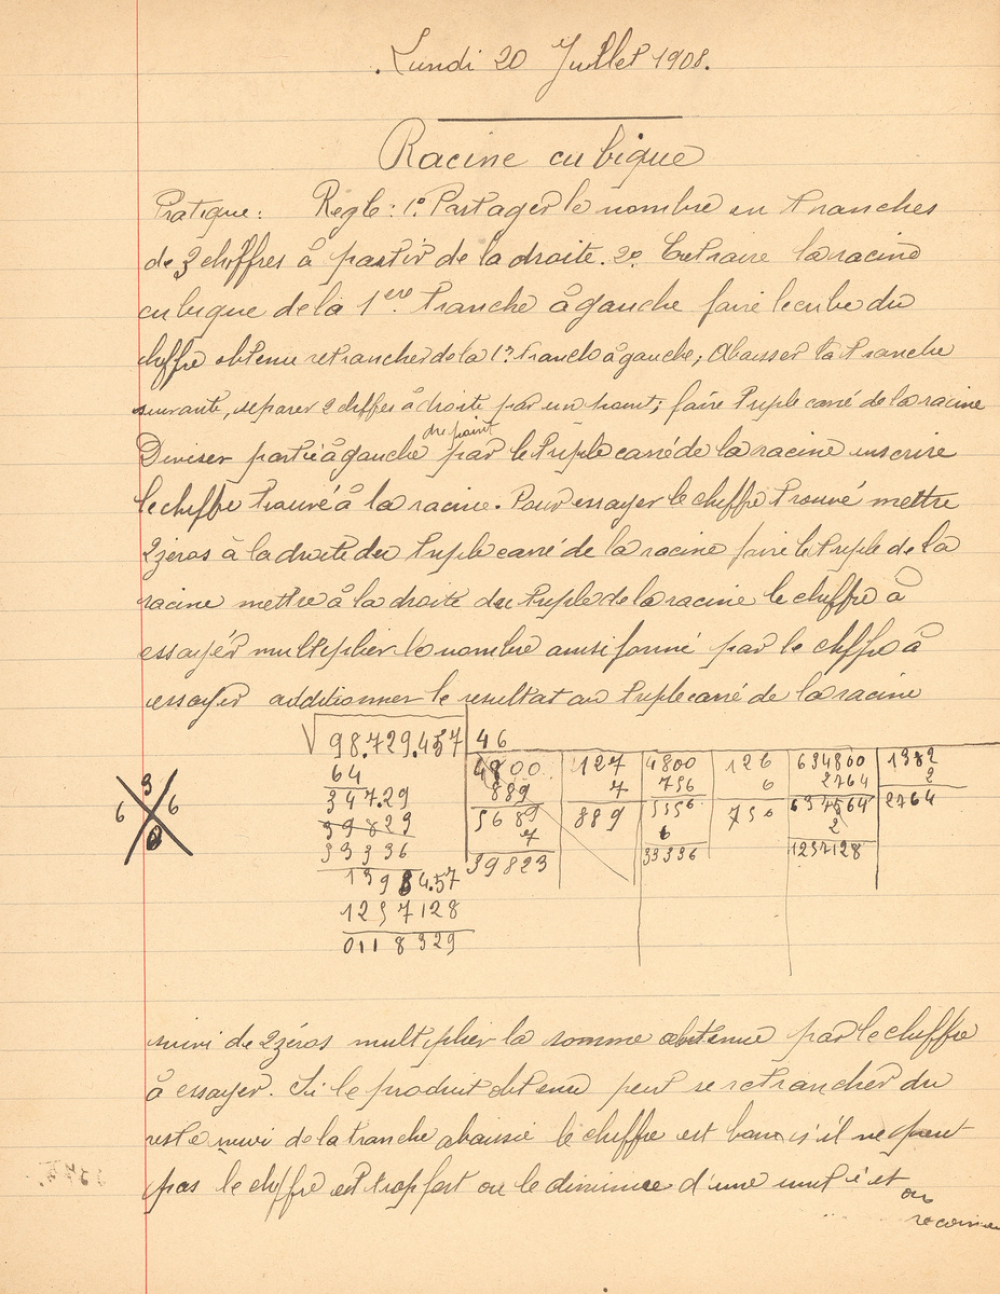 Lundi 20 Juillet 1908.
Racine cubique
Pratique : Règle : 1º. Partager le nombre en tranches
de 3 chiffres à partir de la droite. 2º. Extraire la racine
cubique de la 1ère. tranche à gauche faire le cube du
chiffre obtenu retrancher de la 1º. tranche à gauche; Abaisser la tranche
suivante, séparer 2 chiffres à droite par un point; faire triple carré de la racine
du point
Diviser partie à gauche par le triple carré de la racine inscrire
le chiffre trouvé à la racine. Pour essayer le chiffre trouvé mettre
2 zéros à la droite du triple carré de la racine faire le triple de la
racine mettre à la droite du triple de la racine le chiffre à
essayer multiplier le nombre ainsi formé par le chiffre à
essayer additionner le resultat au triple carré de la racine
√98.729.457 46
64 4800 127 4800 126 634800 1382
347.29 889 7 756 6 2764 2
39829 5689 889 5556 756 637564 2764
33336 7 6 2
13934.57 39823 33336 1257128
1257128
0118329
3
6 6
0
suivi de 2 zéros multiplier la somme obtenue par le chiffre
à essayer. Si le produit obtenu peut se retrancher du
reste suivi de la tranche abaissée le chiffre est bon, s'il ne peut
pas le chiffre est trop fort on le diminue d'une unité et
on
recommen